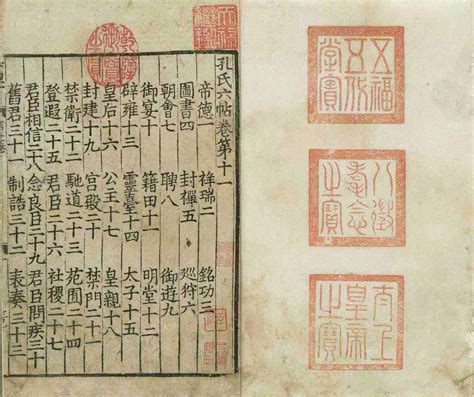 五福五代堂寶
八徵耄念之寶
太上皇帝之寶
天祿繼鑑
乾隆御覽之寶
孔氏六帖卷第十一
帝德一 祥瑞二 銘功三
圖書四 封禪五 巡狩六
朝會七 聘八 御遊九
御宴十 籍田十一 明堂十二
辟雍十三 靈臺十四 太子十五
皇后十六 公主十七 皇親十八
封建十九 宮殿二十 禁門二十一
禁衛二十二 馳道二十三 苑囿二十四
登遐二十五 君臣二十六 社稷二十七
君臣相信二十八 念良臣二十九 君臣問疾三十
舊君三十一 制誥三十二 表奏三十三